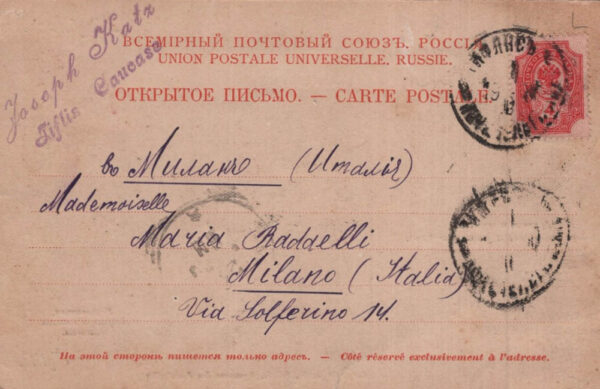 Joseph Katz
Tiflis Caucase
ВСЕМІРНЫЙ ПОЧТОВЫЙ СОЮЗЪ. РОССІЯ
UNION POSTALE UNIVERSELLE. RUSSIE.
ОТКРЫТОЕ ПИСЬМО. — CARTE POSTALE.
въ Миланъ (Италія)
Mademoiselle
Maria Radaelli
Milano (Italia)
Via Solferino 14.
На этой сторонѣ пишется только адресъ. — Côté réservé exclusivement à l'adresse.